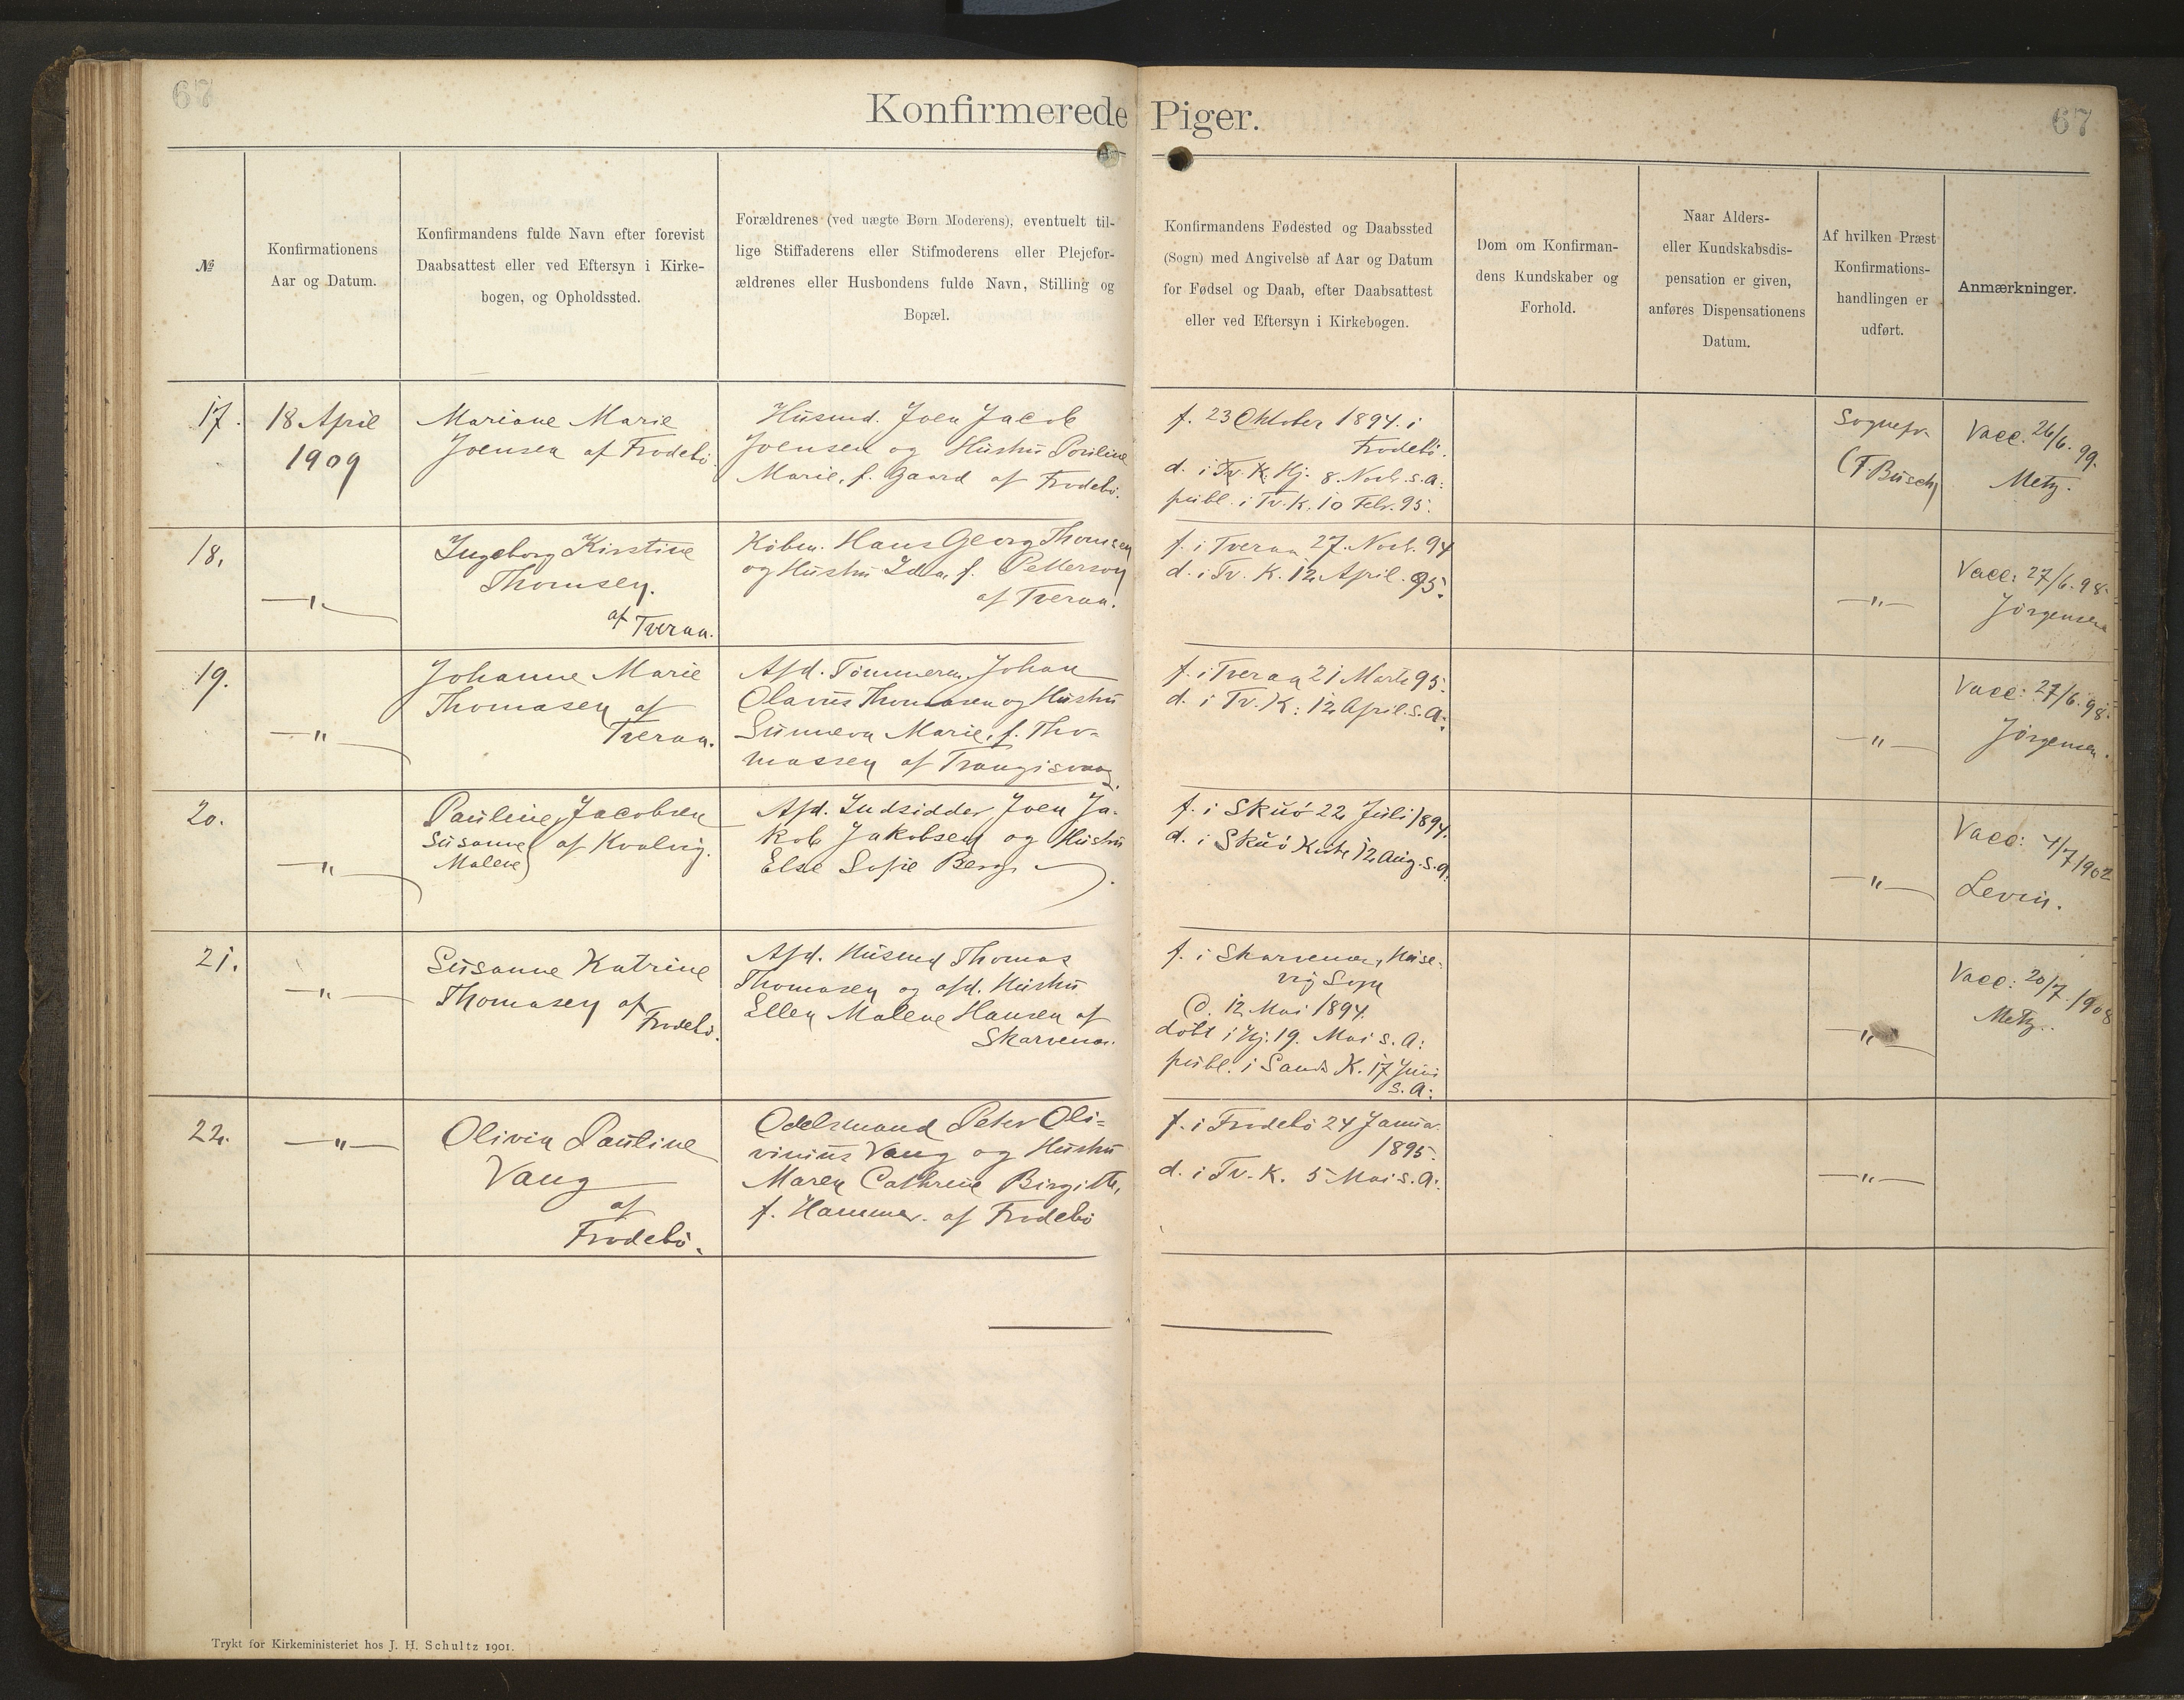 67
67
Konfirmerede Piger.
№
Konfirmationens
Aar og Datum.
Konfirmandens fulde Navn efter forevist
Daabsattest eller ved Eftersyn i Kirke-
bogen, og Opholdssted.
Forældrenes (ved uægte Børn Moderens), eventuelt til-
lige Stiffaderens eller Stifmoderens eller Plejefor-
ældrenes eller Husbondens fulde Navn, Stilling og
Bopæl.
Konfirmandens Fødested og Daabssted
(Sogn) med Angivelse af Aar og Datum
for Fødsel og Daab, efter Daabsattest
eller ved Eftersyn i Kirkebogen.
Dom om Konfirman-
dens Kundskaber og
Forhold.
Naar Alders-
eller Kundskabsdis-
pensation er given,
anføres Dispensationens
Datum.
Af hvilken Præst
Konfirmations-
handlingen er
udført.
Anmærkninger.
17.
18 April
1909
Mariane Marie
Joensen af Frodebö
Husmd. Joen Jacob
Joensen og Hustru Pouline
Marie, f. Gaard af Frodebö.
f. 23 Oktober 1894 i
Frodebö.
d. i Tv. K. Hj. 8. Novb. s. A:
publ. i Tv. K. 10 Febr. 95.
Sognepr.
(F. Busch)
Vacc. 26/6. 99.
Metz.
18.
— " —
Ingeborg Kirstine
Thomsen.
af Tveraa.
Købm. Hans Georg Thomsen
og Hustru Ida, f. Petterson
af Tveraa.
f. i Tveraa 27. Novb. 94
d. i Tv. K. 12 April. 95.
— " —
Vacc: 27/6. 98.
Jörgensen
19.
— " —
Johanne Marie
Thomasen af
Tveraa.
Afd. Tömmerm. Johan
Olavus Thomasen og Hustru
Sunneva Marie, f. Tho-
massen af Trangisvaag.
f. i Tveraa 21 Marts 95.
d. i Tv. K: 12 April. s. A:
— " —
Vacc: 27/6. 98.
Jörgensen.
20.
— " —
Pauline Jacobsen
Susanne af Kvalvig.
Malene
Afd. Indsidder Joen Ja-
kob Jakobsen og Hustru
Else Sofie Berg.
f. i Skuö 22 Juli 1894.
d. i Skuö Kirke 12 Aug. s. A.
— " —
Vacc: 4/7 1902
Levin.
21.
— " —
Susanne Katrine
Thomasen af
Frodebö.
Afd. Husmd Thomas
Thomasen og afd. Hustru
Ellen Malene Hansen af
Skarvenæs.
f. i Skarvenæs, Huse-
vig Sogn
d. 12 Mai 1894.
döbt i Hj. 19. Mai s. A:
publ. i Sands K. 17 Juni
s. A:
— " —
Vacc: 20/7. 1908
Metz.
22.
— " —
Olivia Pauline
Vang
af
Frodebö.
Odelsmand Peter Oli-
vinus Vang og Hustru
Maren Cathrine Birgitte,
f. Hammer. af Frodebö
f. i Frodebö 24 Januar
1895.
d. i Tv. K. 5 Mai s. A:
— " —
Trykt for Kirkeministeriet hos J. H. Schultz 1901.